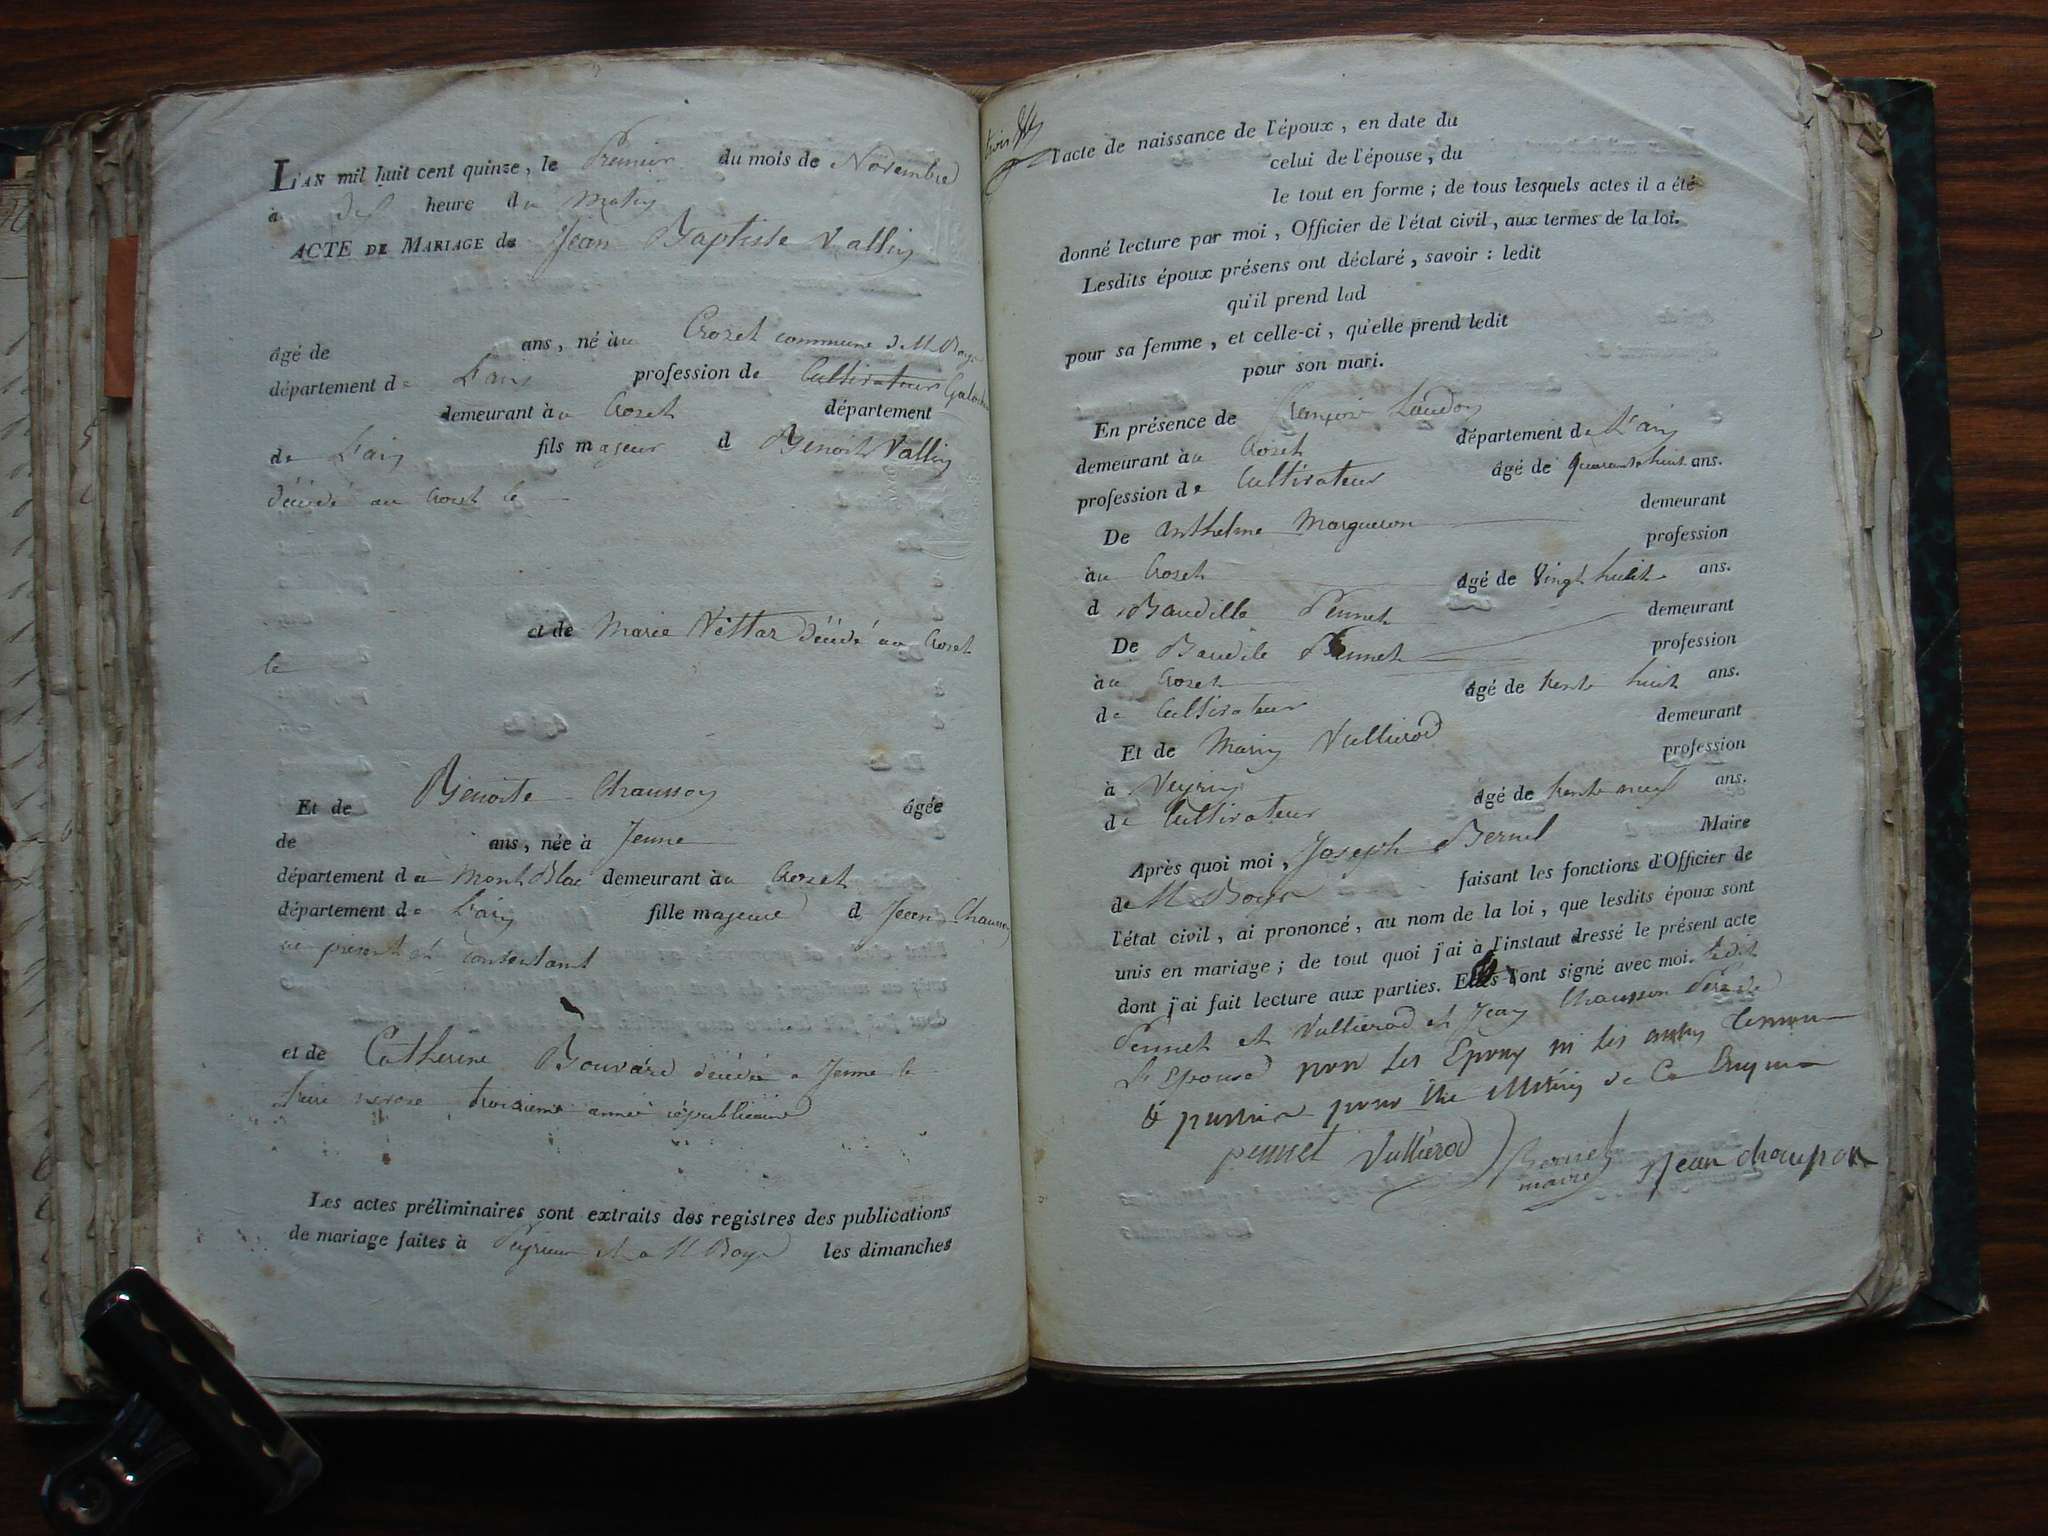 L'AN mil huit cent quinze, le Premier du mois de Novembre
à dix heure du Matin
ACTE DE MARIAGE de Jean Baptiste Vallin
âgé de ans, né au Crozet commune de St Bois
département de L'ain profession de Cultivateur
demeurant àu Crozet département
de L'ain fils majeur d Benoit Vallin
décédé au Crozet le
et de Marie Vettar décédé au Crozet
le
Et de Benoite Chausson âgée
de ans, née à Jenne
département du Mont Blac demeurant àu Crozet
département de L'ain fille majeure d Jean Chausson
ici présent et consentant
et de Catherine Bouvard décédée a Jenne le
treize nivose troisieme année républicaine
Les actes préliminaires sont extraits des registres des publications
de mariage faites à Peyrieu et a St Bois les dimanches
l'acte de naissance de l'époux, en date du
celui de l'épouse, du
le tout en forme ; de tous lesquels actes il a été
donné lecture par moi, Officier de l'état civil, aux termes de la loi.
Lesdits époux présens ont déclaré, savoir : ledit
qu'il prend lad
pour sa femme, et celle-ci, qu'elle prend ledit
pour son mari.
En présence de François Landoz
demeurant àu Crozet département de L'ain
profession de Cultivateur âgé de quarante huit ans.
De Anthelme Margueron demeurant
àu Crozet profession
d Baudille Pennet âgé de Vingt huit ans.
De Baudile Pennet demeurant
àu Crozet profession
de Cultivateur âgé de trente huit ans.
Et de Marin Vullierod demeurant
à Veyrin profession
de Cultivateur âgé de trente neuf ans.
Après quoi moi, Joseph Bernel Maire
de St Bois faisant les fonctions d'Officier de
l'état civil, ai prononcé, au nom de la loi, que lesdits époux sont
unis en mariage ; de tout quoi j'ai à l'instaut dressé le présent acte
dont j'ai fait lecture aux parties. Et ont signé avec moi ledit
Pennet et Vullierod et Jean Chausson Père de
L'Epouse non les Epoux ni les autres temoins
pour
pennet Vullierod Bernel maire jean chauson